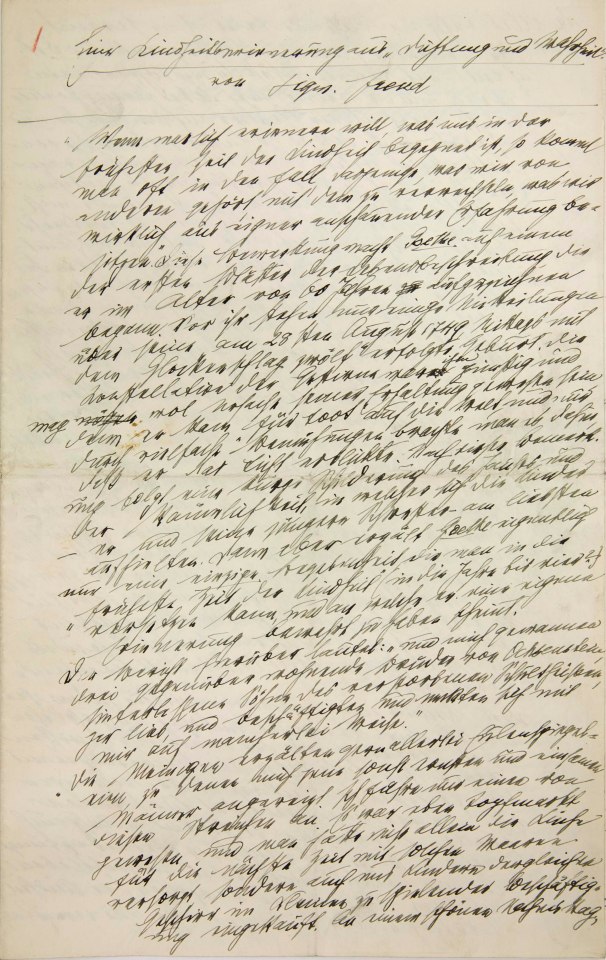 Eine Kindheitserinnerung aus „Dichtung und Wahrheit“
von Sigm. Freud
„Wenn man sich erinnern will, was uns in der
frühesten Zeit der Kindheit begegnet ist, so kommt
man oft in den Fall dasjenige, was wir von
anderen gehört mit dem zu verwechseln, was wir
wirklich aus eigner anschauender Erfahrung be-
sitzen“. Diese Bemerkung macht Goethe auf einem
der ersten Blätter der Lebensbeschreibung die
er im Alter von 60 Jahren aufzuzeichnen
begann. Vor ihr stehen nur einige Mitteilungen
über seine am 28sten August 1749 Mittags mit
dem Glockenschlag zwölf erfolgte Geburt. Die
Konstellation der Gestirne war ihm günstig und
mag wol Ursache seiner Erhaltung gewesen sein
denn er kam „für todt“ auf die Welt und nur
durch vielfache Bemühungen brachte man es dahin
daß er das Licht erblickte. Nach dieser Bemerk-
ung folgt eine kurze Schilderung des Hauses und
der Räumlichkeit, in welcher sich die Kinder
– er und seine jüngere Schwester – am liebsten
aufhielten. Dann aber erzählt Goethe eigentlich
nur eine einzige Begebenheit die man in die
„früheste Zeit der Kindheit“ (in die Jahre bis vier?)
versetzen kann und an welche er eine eigene
Erinnerung bewahrt zu haben scheint.
Der Bericht hierüber lautet: „und mich gewannen
drei gegenüber wohnende Brüder von Ochsenstein,
hinterlassene Söhne des verstorbenen Schultheißen,
gar lieb, und beschäftigten und neckten sich mit
mir auf mancherlei Weise.“
„Die Meinigen erzälten gern allerlei Eulenspiegel-
eien, zu denen mich jene sonst ernsten und einsamen
Männer angereizt. Ich führe nur einen von
diesen Streichen an. Es war eben Topfmarkt
gewesen und man hatte nicht allein die Küche
für die nächste Zeit mit solchen Waaren
versorgt sondern auch uns Kindern dergleichen
Geschirr im Kleinen zu spielender Beschäftig-
ung eingekauft. An einem schönen Nachmittag,